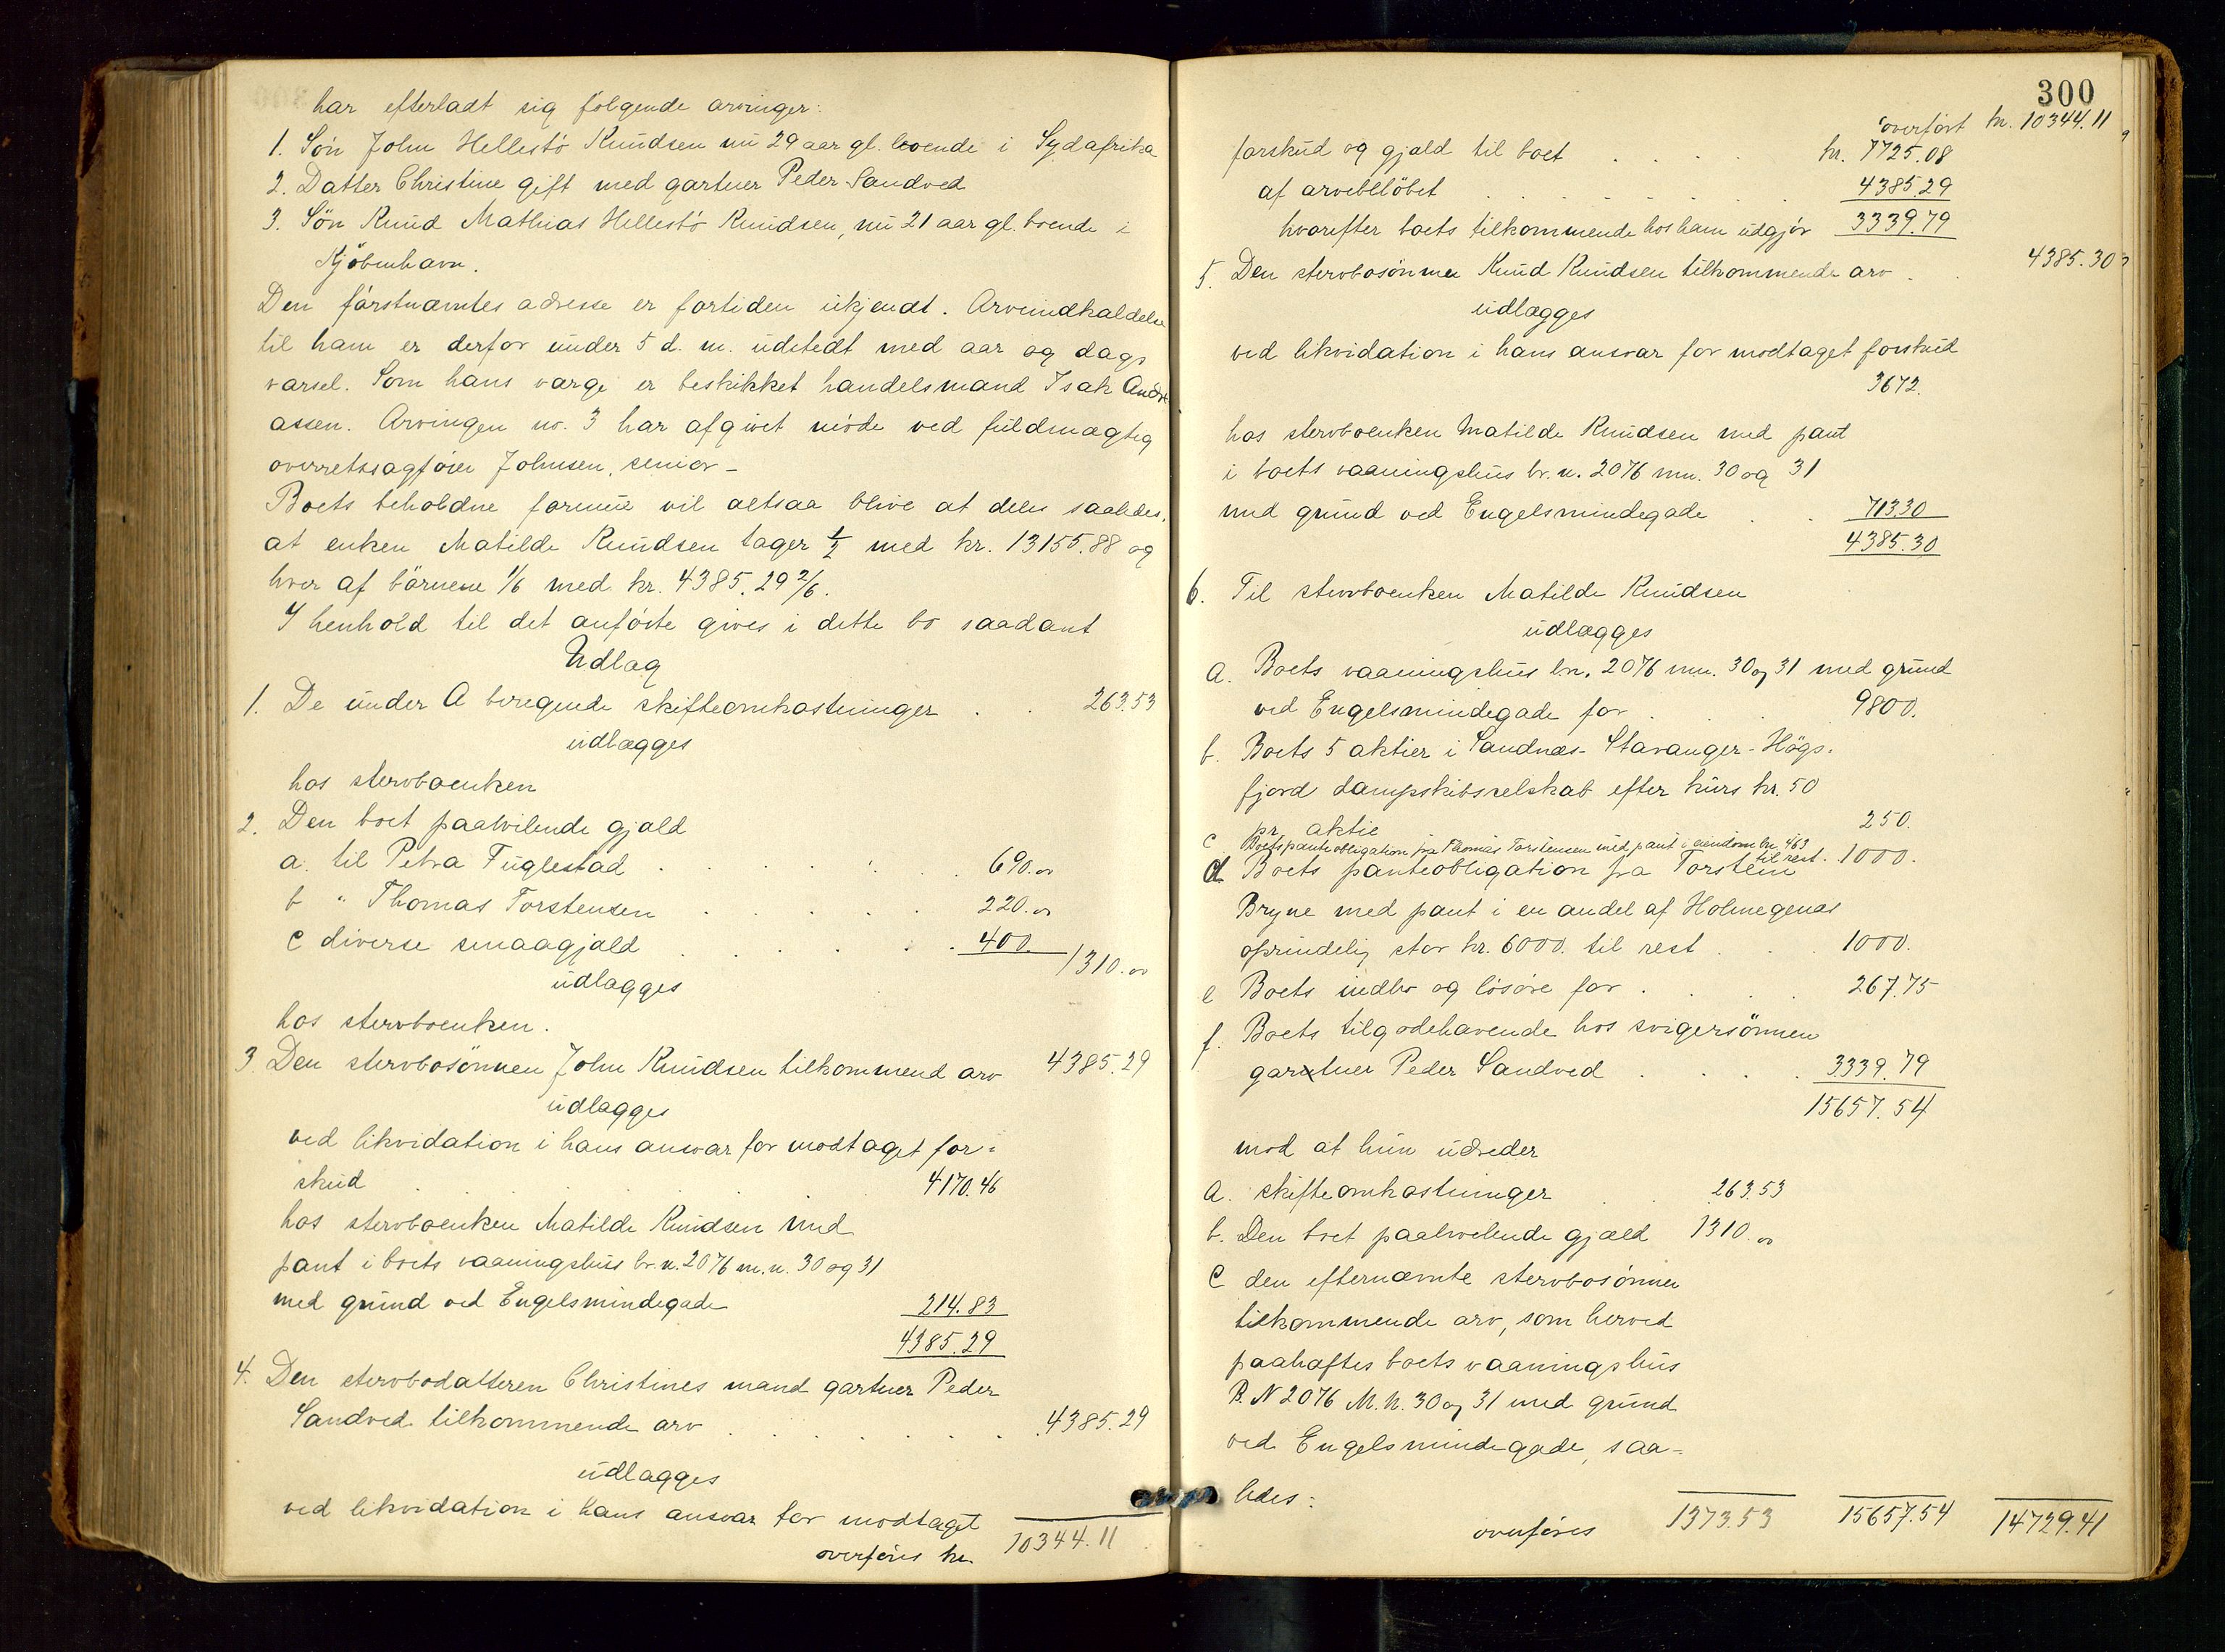 har efterladt sig følgende arvinger:
1. Søn John Hellestö Knudsen nu 29 aar gl. boende i Sydafrika
2. Datter Christine gift med gartner Peder Sandved
3. Søn Knud Mathias Hellestö Knudsen, nu 21 aar gl. boende i
Kjöbenhavn.
Den förstnævntes adresse er fortiden ukjendt. Arveindkaldelse
til ham er derfor under 5 d. m. udstedt med aar og dags
varsel. Som hans værge er beskikket handelsmand Isak Andre
assen. Arvingen no. 3 har afgivet möde ved fuldmægtig
overretssagförer Johnsen, senior -
Boets beholdne formue vil altsaa blive at deles saaledes,
at enken Matilde Knudsen tager ½ med kr. 13155.88 og
hver af börnene 1/6 med kr. 4385.29 2/6.
I henhold til det anförte gives i dette bo saadant
Udlæg
1. De under A beregnede skifteomkostninger . . 263.53
udlægges
hos stervboenken
2. Den boet paahvilende gjæld
a. til Petra Fuglestad . . . . 690.00
b " Thomas Torstensen . . . . 220.00
c diverse smaagjæld . . . . 400.
1310.00
udlægges
hos stervboenken.
3 Den stervbosönnen John Knudsen tilkommend arv 4385.29
udlægges
ved likvidation i hans ansvar for modtaget for-
skud . . . 4170.46
hos stervboenken Matilde Knudsen med
pant i boets vaaningshus br.n. 2076 m.n. 30 og 31
med grund ved Engelsmindegade 214.83
4385.29
4. Den stervbodatteren Christines mand gartner Peder
Sandved tilkommende arv . . . . . . . 4385.29
udlægges
ved likvidation i hans ansvar for modtaget
overföres kr. 10344.11
300
overfört kr. 10344.11
forskud og gjæld til boet . . . . kr. 7725.08
af arvebelöbet . . . . . . . 4385.29
hvorefter boets tilkommende hos ham udgjör 3339.79
5. Den stervbosönnen Knud Knudsen tilkommende arv . . 4385.30
udlægges
ved likvidation i hans ansvar for modtaget forskud
3672.
hos stervboenken Matilde Knudsen med pant
i boets vaaningshus br.n. 2076 mn. 30 og 31
med grund ved Engelsmindegade . . 713.30
4385.30
6. Til stervboenken Matilde Knudsen
udlægges
a. Boets vaaningshus b.n. 2076 mn. 30 og 31 med grund
ved Engelsmindegade for . . . 9800.
b. Boets 5 aktier i Sandnæs-Stavanger-Högs-
fjord dampskibsselskab efter kurs kr. 50
pr. aktie 250.
c Boets panteobligation fra Thomas Torstensen med pant i eiendom bn. 463
til rest. 1000.
d Boets panteobligation fra Torstein
Bryne med pant i en andel af Holmegenæs
oprindelig stor kr. 6000. til rest . . 1000.
e Boets indbo og lösöre for . . . 267.75
f. Boets tilgodehavende hos svigersönnen
gartner Peder Sandved . . . . 3339.79
15657.54
mod at hun udreder
a. skifteomkostninger . . 263.53
b. Den boet paahvilende gjæld 1310.00
c den efternævnte stervbosönner
tilkommende arv, som herved
paahæftes boets vaaningshus
B.N 2076 M.N. 30 og 31 med grund
ved Engelsmindegade, saa-
ledes:
overföres 1373.53 15657.54 14729.41